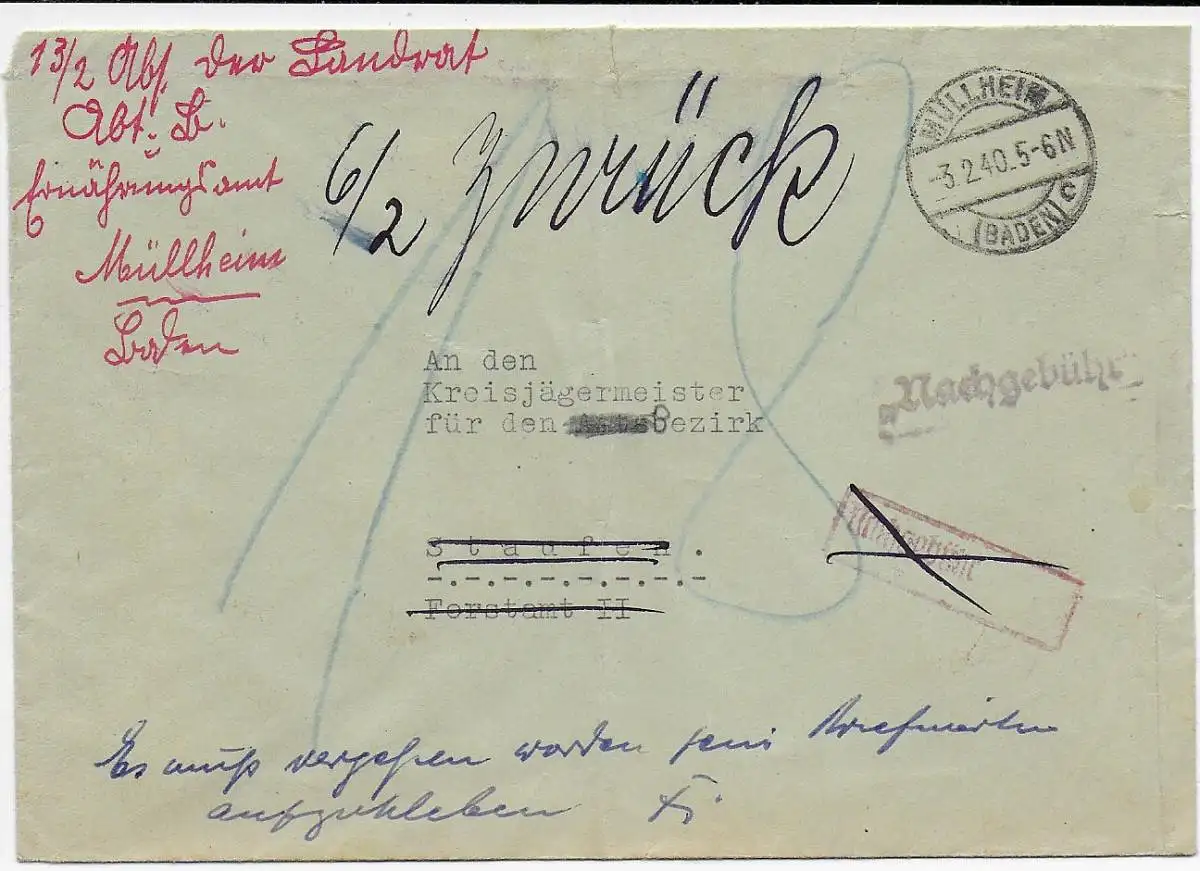 13/2 Abs. der Landrat
Abt. B.
Ernährungsamt
Müllheim
Baden
6/2 Zurück
MÜLLHEIM
-3.2.40.5-6N
(BADEN) c
An den
Kreisjägermeister
für den Bezirk
Nachgebühr
Staufen.
-.-.-.-.-.-.-.-
Forstamt II
18
Es muß vergessen worden sein Briefmarken
aufzukleben